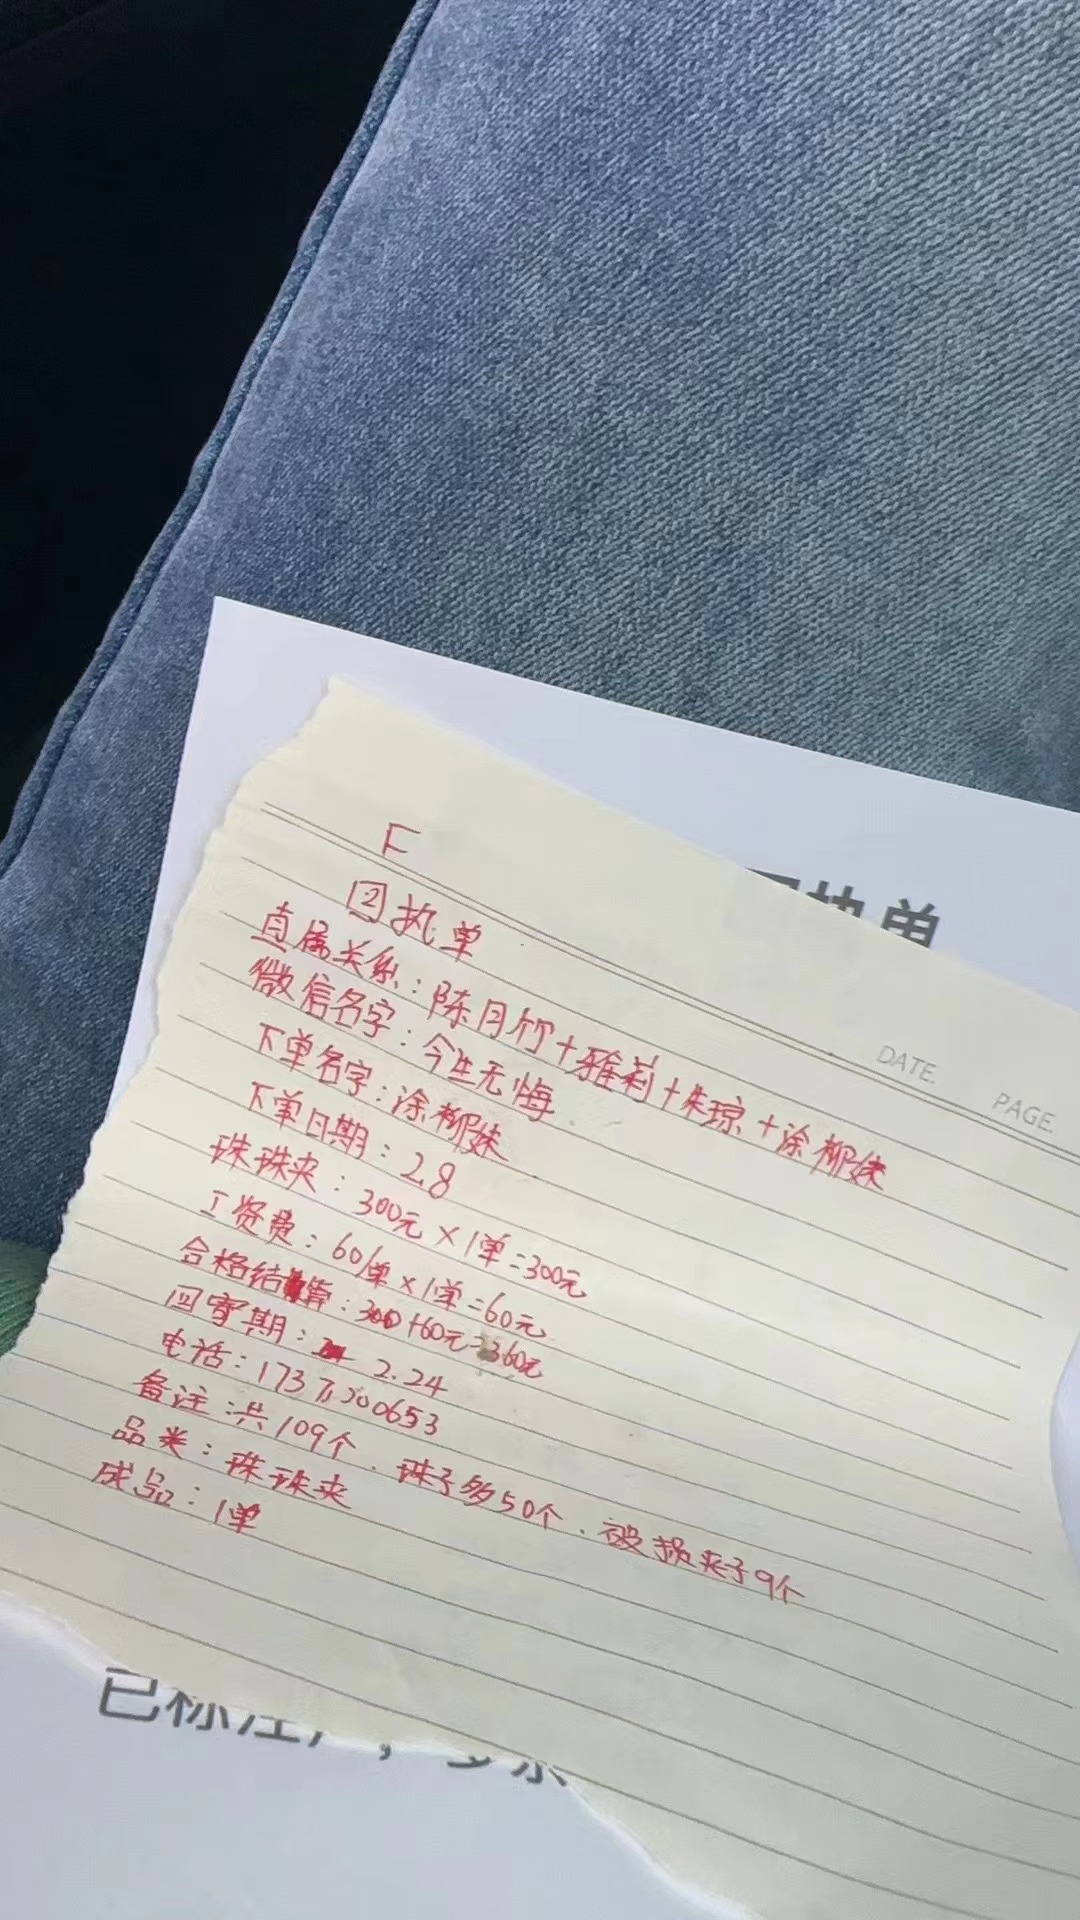 F
回执单
直属关系：陈月竹+雅莉+朱琼+涂柳妹
微信名字：今生无悔.
下单名字：涂柳妹
下单日期：2.8
珠珠夹：300元×1单=300元
工资费：60/单×1单=60元
合格结算：300+60元=360元
回寄期：2.24
电话：
备注：共109个.珠子多50个.被损夹子9个
品类：珠珠夹
成品：1单
DATE.
PAGE.
执单
已标注